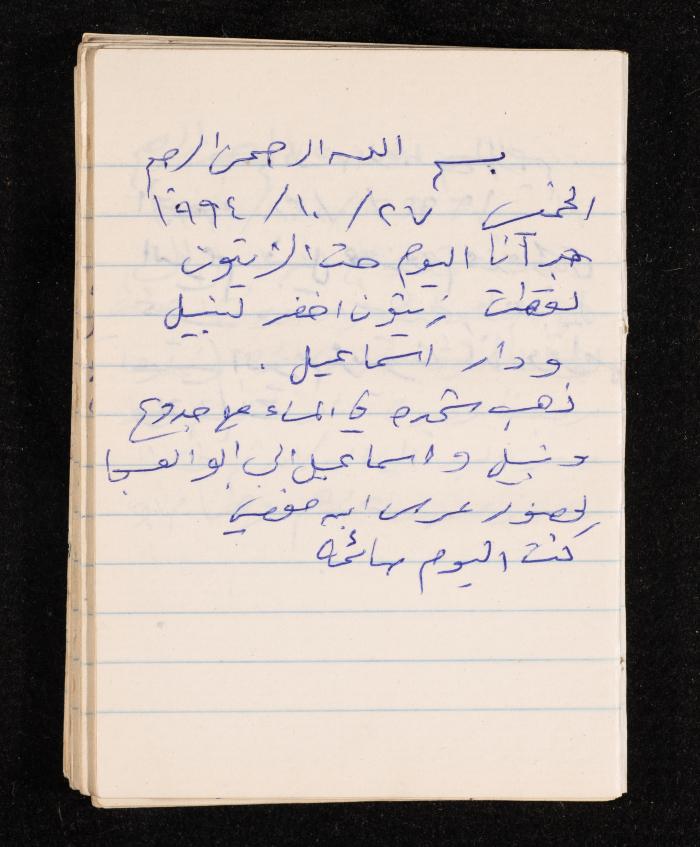 بسم الله الرحمن الرحيم
الخميس ٢٧/١٠/١٩٩٤
اليوم الزيتون
لقطت زيتون اخضر لنبيل
ودار اسماعيل .
ذهب شحده في المساء مع جدوع
ونبيل واسماعيل الى ابو العسجا
لحضور عرس ابنه
كنت اليوم صائمه